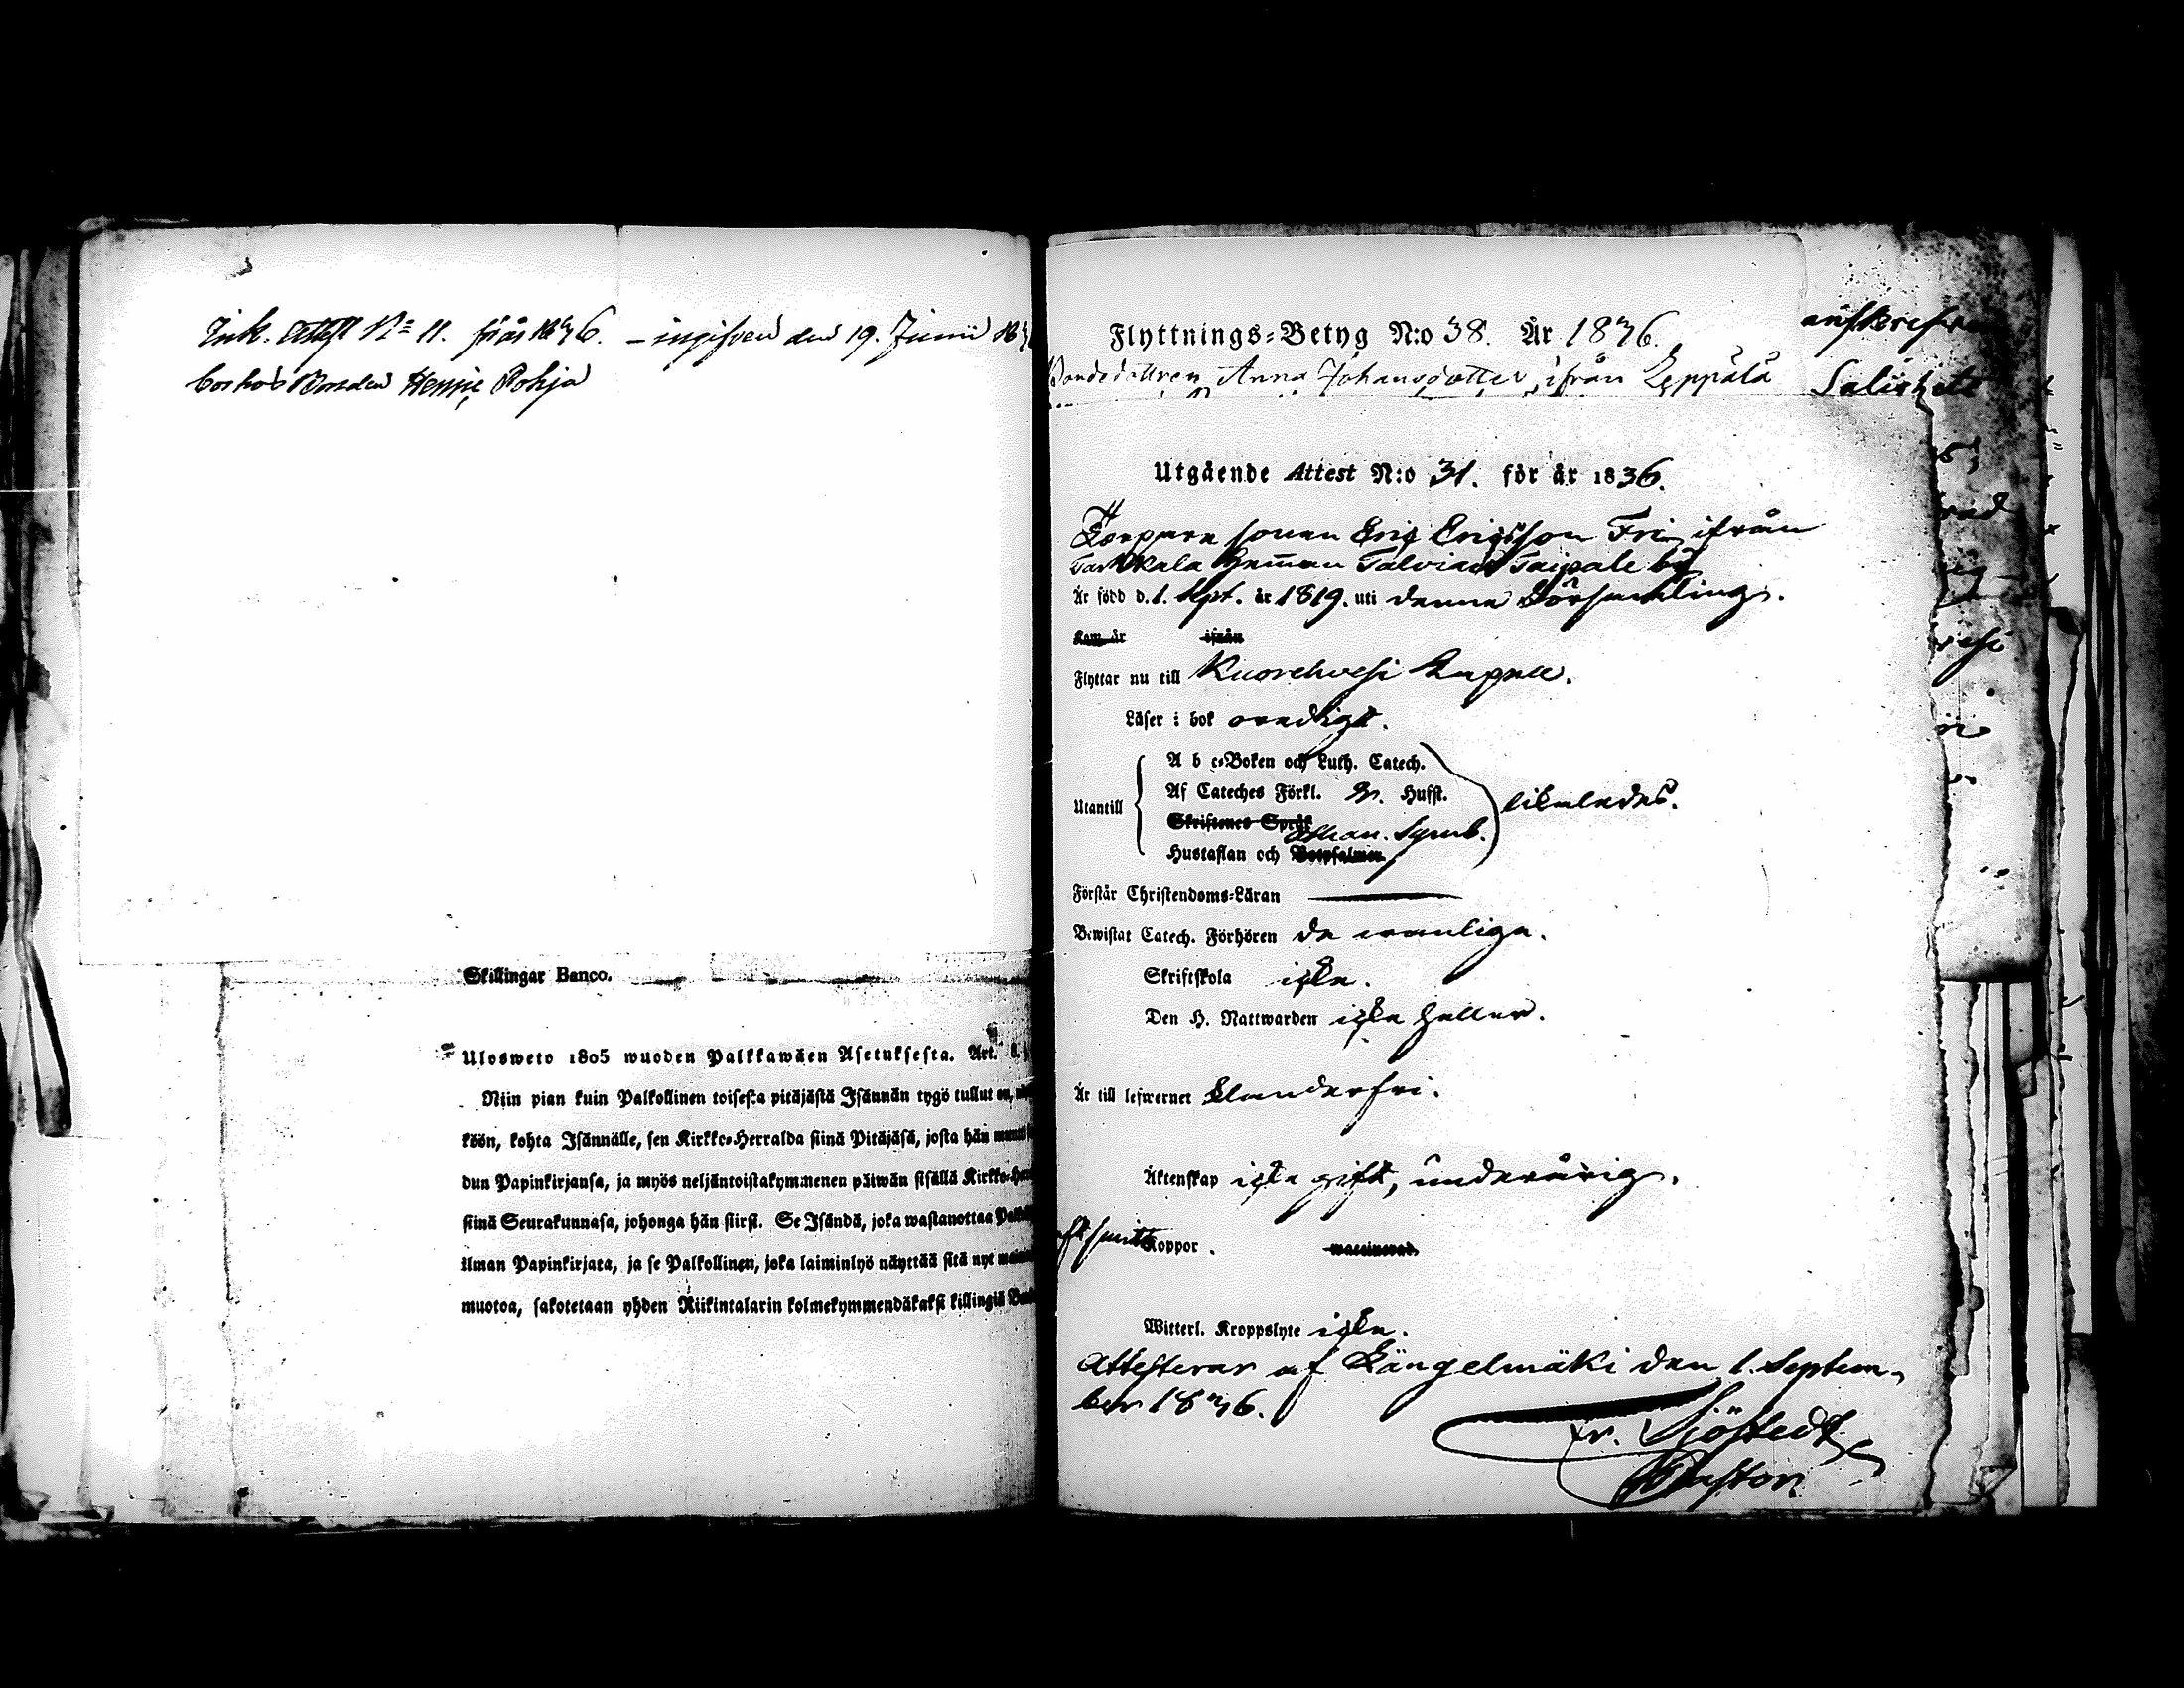 Ink. Attest N:o 11. från 1836. – ingifven den 19. Junii
bor hos Bonden Henric Pohja
Skillingar Banco.
Ulosweto 1805 wuoden Palkkawäen Asetuksesta. Art.
Niin pian kuin Palkollinen toisesta pitäjästä Isännän tygö tullut on,
köön, kohta Isännälle, sen Kirkko-Herralda siinä Pitäjäsä, josta hän
dun Papinkirjansa, ja myös neljäntoistakymmenen päiwän sisällä
siinä Seurakunnasa, johonga hän siirsi. Se Isändä, joka wastanottaa
ilman Papinkirjata, ja se Palkollinen, joka laiminlyö näyttää sitä nyt
muotoa, sakotetaan yhden Riikintalarin kolmekymmendäkaksi killingiä
Flyttnings-Betyg N:o 38. År 1836.
Bondedottren Anna Johansdotter, ifrån Leppälä
Utgående Attest N:o 31. för år 1836.
Torpare sonen Eric Ericsson Fri, ifrån
hemman Talviais Taipale by
Är född d. 1. Sept. år 1819. uti denna Församling.
Kom år ifrån
Flyttar nu till Kuorehvesi Capell.
Läser i bok oredigt.
A b c-Boken och Luth. Catech.
Utantill
Af Cateches Förkl. 3. Hufst.
likaledes.
Skriftenes Språk
Athan. Symb.
Hustaflan och Botpsalmer
Förstår Christendoms-Läran
Bewistat Catech. Förhören de wanliga.
Skriftskola icke.
Den H. Nattwarden icke heller.
Är till lefwernet klanderfri.
Äktenskap icke gift, underårig.
Koppor. waccinerad.
Witterl. Kroppslyte icke.
Attesterar af Längelmäki den 1. Septem-
ber 1836.
Fr. Sjöstedt
Pastor.